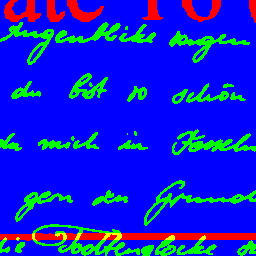 ate To
Augenblicke sagen
du bist so schön
da mich in Fesseln
gern zu Grund
die Todtenglocke